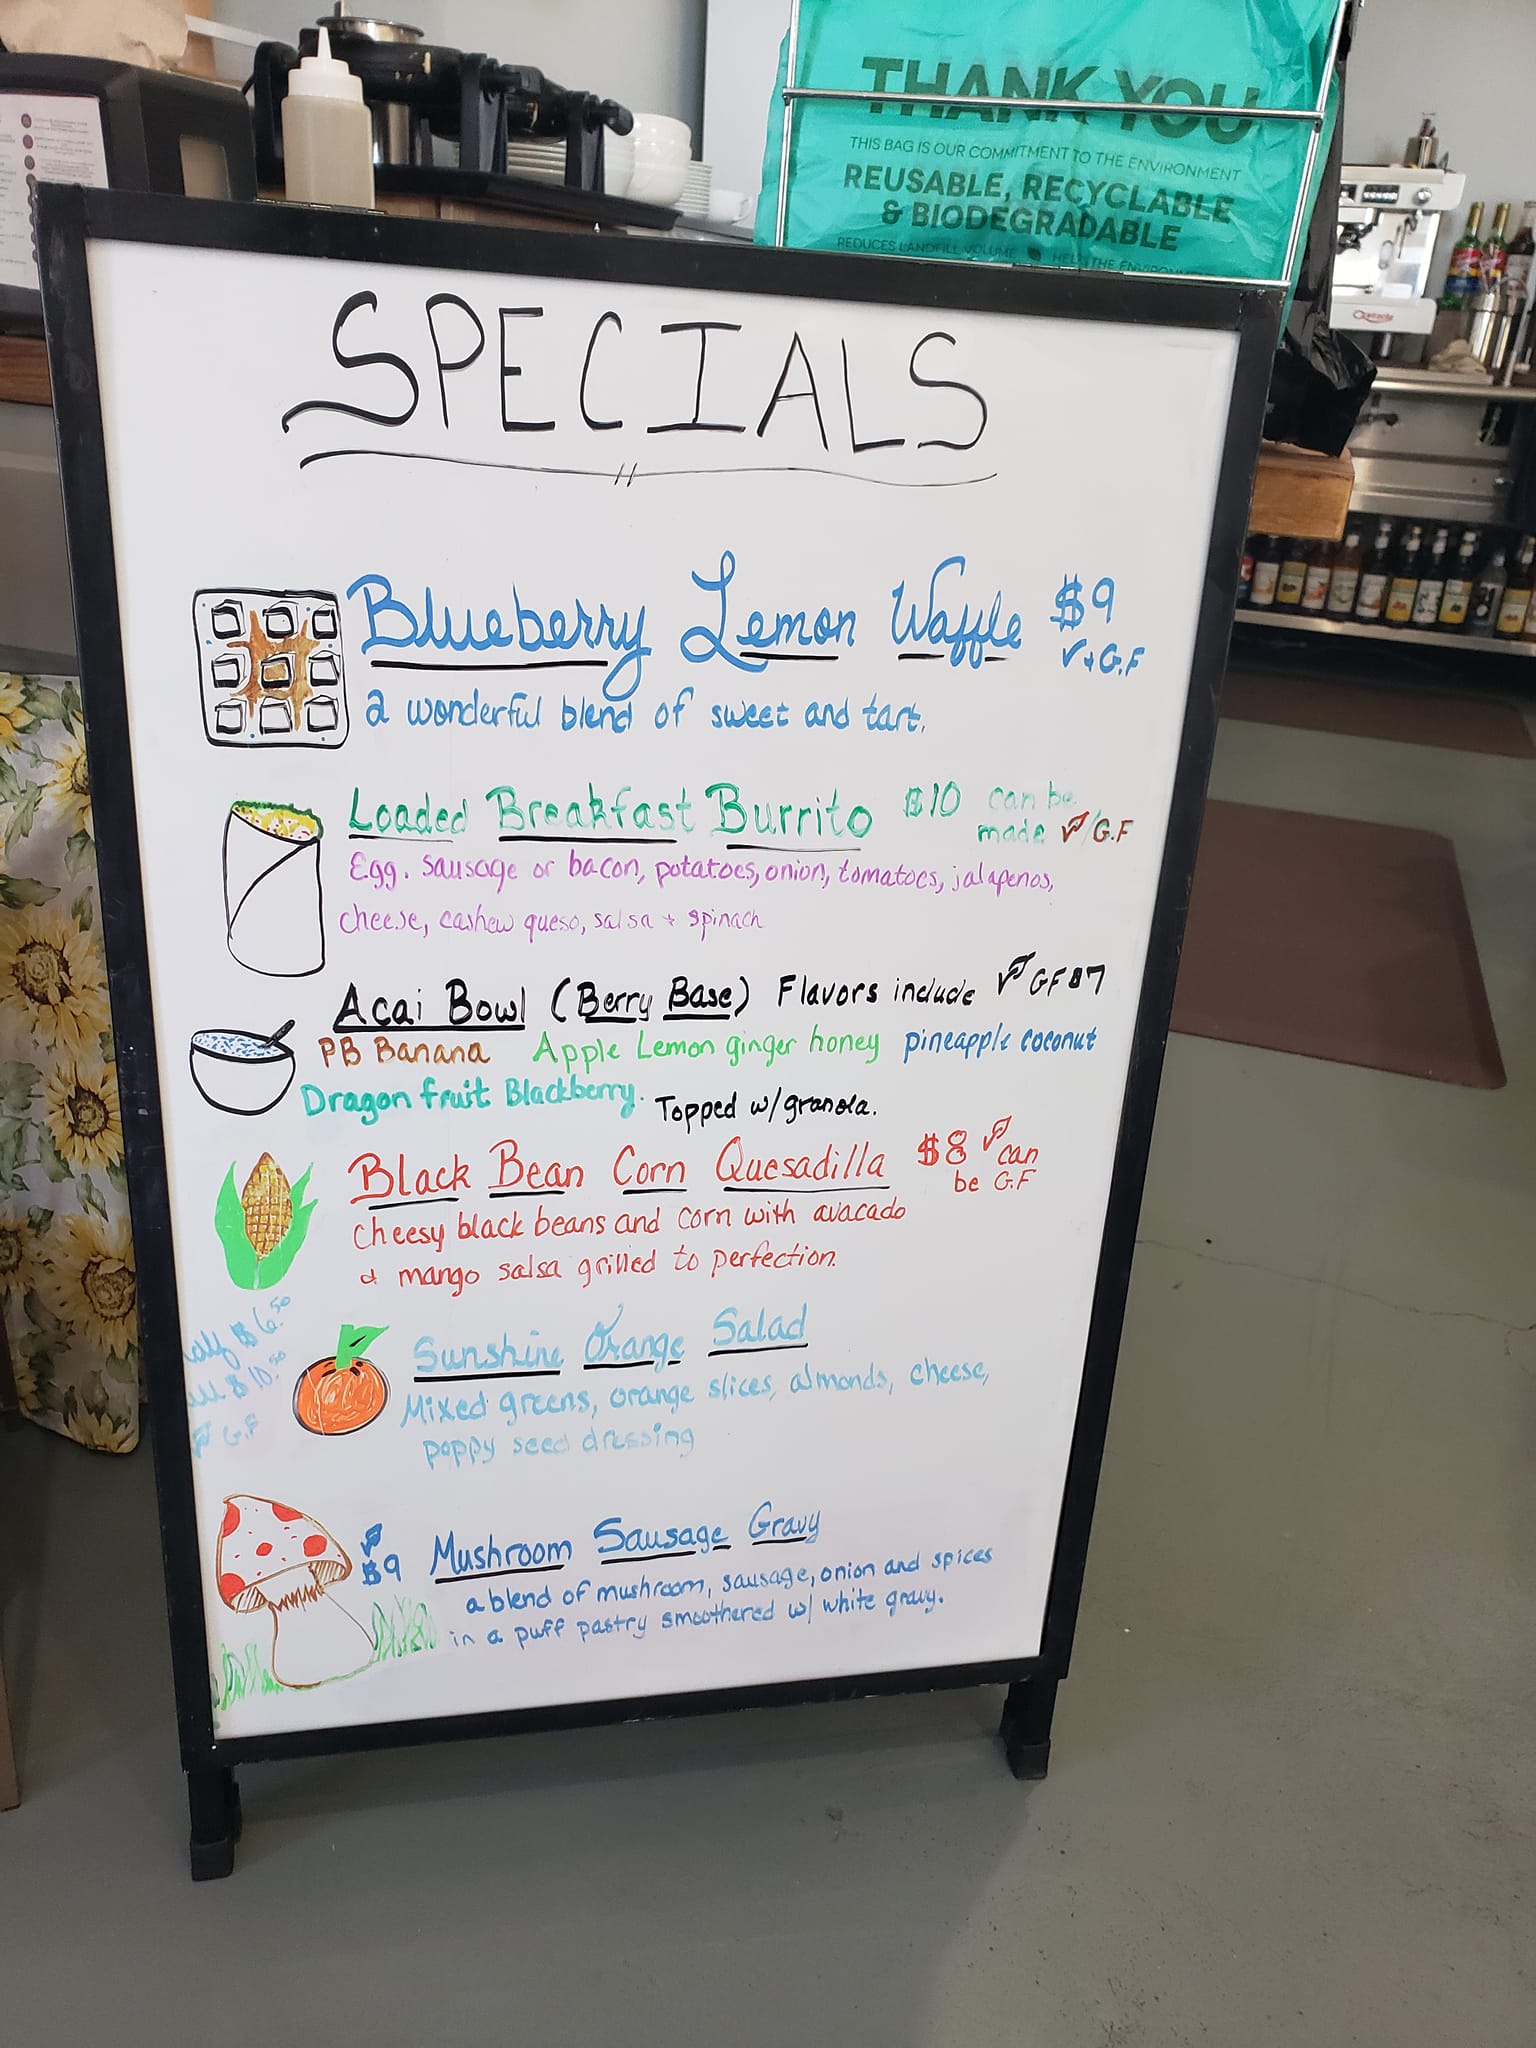 THANK YOU
THIS BAG IS OUR COMMITMENT TO THE ENVIRONMENT
REUSABLE, RECYCLABLE
& BIODEGRADABLE
REDUCES LANDFILL VOLUME HELP THE
SPECIALS
Blueberry Lemon Waffle $9
V + G.F
a wonderful blend of sweet and tart.
Loaded Breakfast Burrito $10 can be
made V/G.F
Egg. sausage or bacon, potatoes, onion, tomatoes, jalapenos,
cheese, cashew queso, salsa + spinach
Acai Bowl (Berry Base) Flavors include V GF
PB Banana Apple Lemon ginger honey pineapple coconut
Dragon fruit Blackberry. Topped w/granola.
Black Bean Corn Quesadilla $8 V can
be G.F
cheesy black beans and corn with avacado
& mango salsa grilled to perfection.
$6.50
$10.50
V G.F
Sunshine Orange Salad
Mixed greens, orange slices, almonds, cheese,
poppy seed dressing
V
$9 Mushroom Sausage Gravy
a blend of mushroom, sausage, onion and spices
in a puff pastry smoothered w/ white gravy.